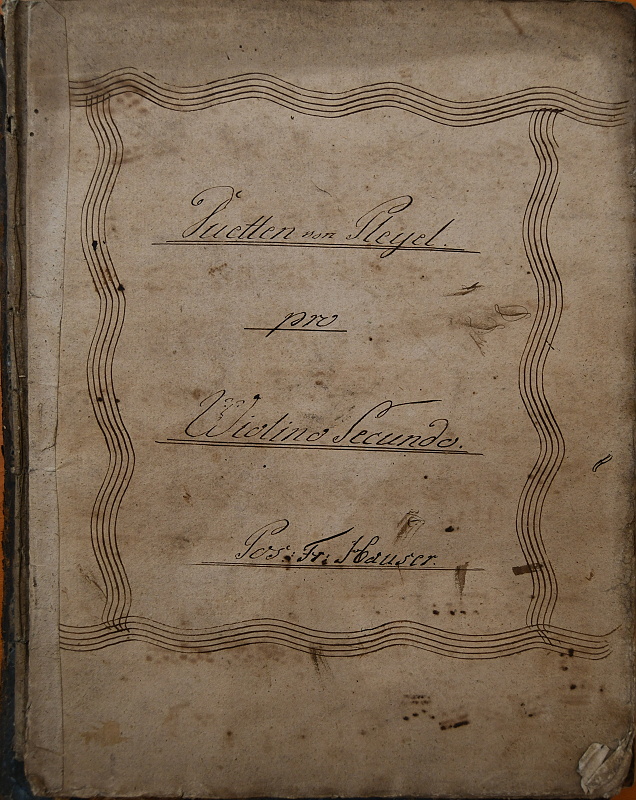 Duetten von Pleyel.
pro
Wiolino Secundo.
Pos: Fr: Hauser.